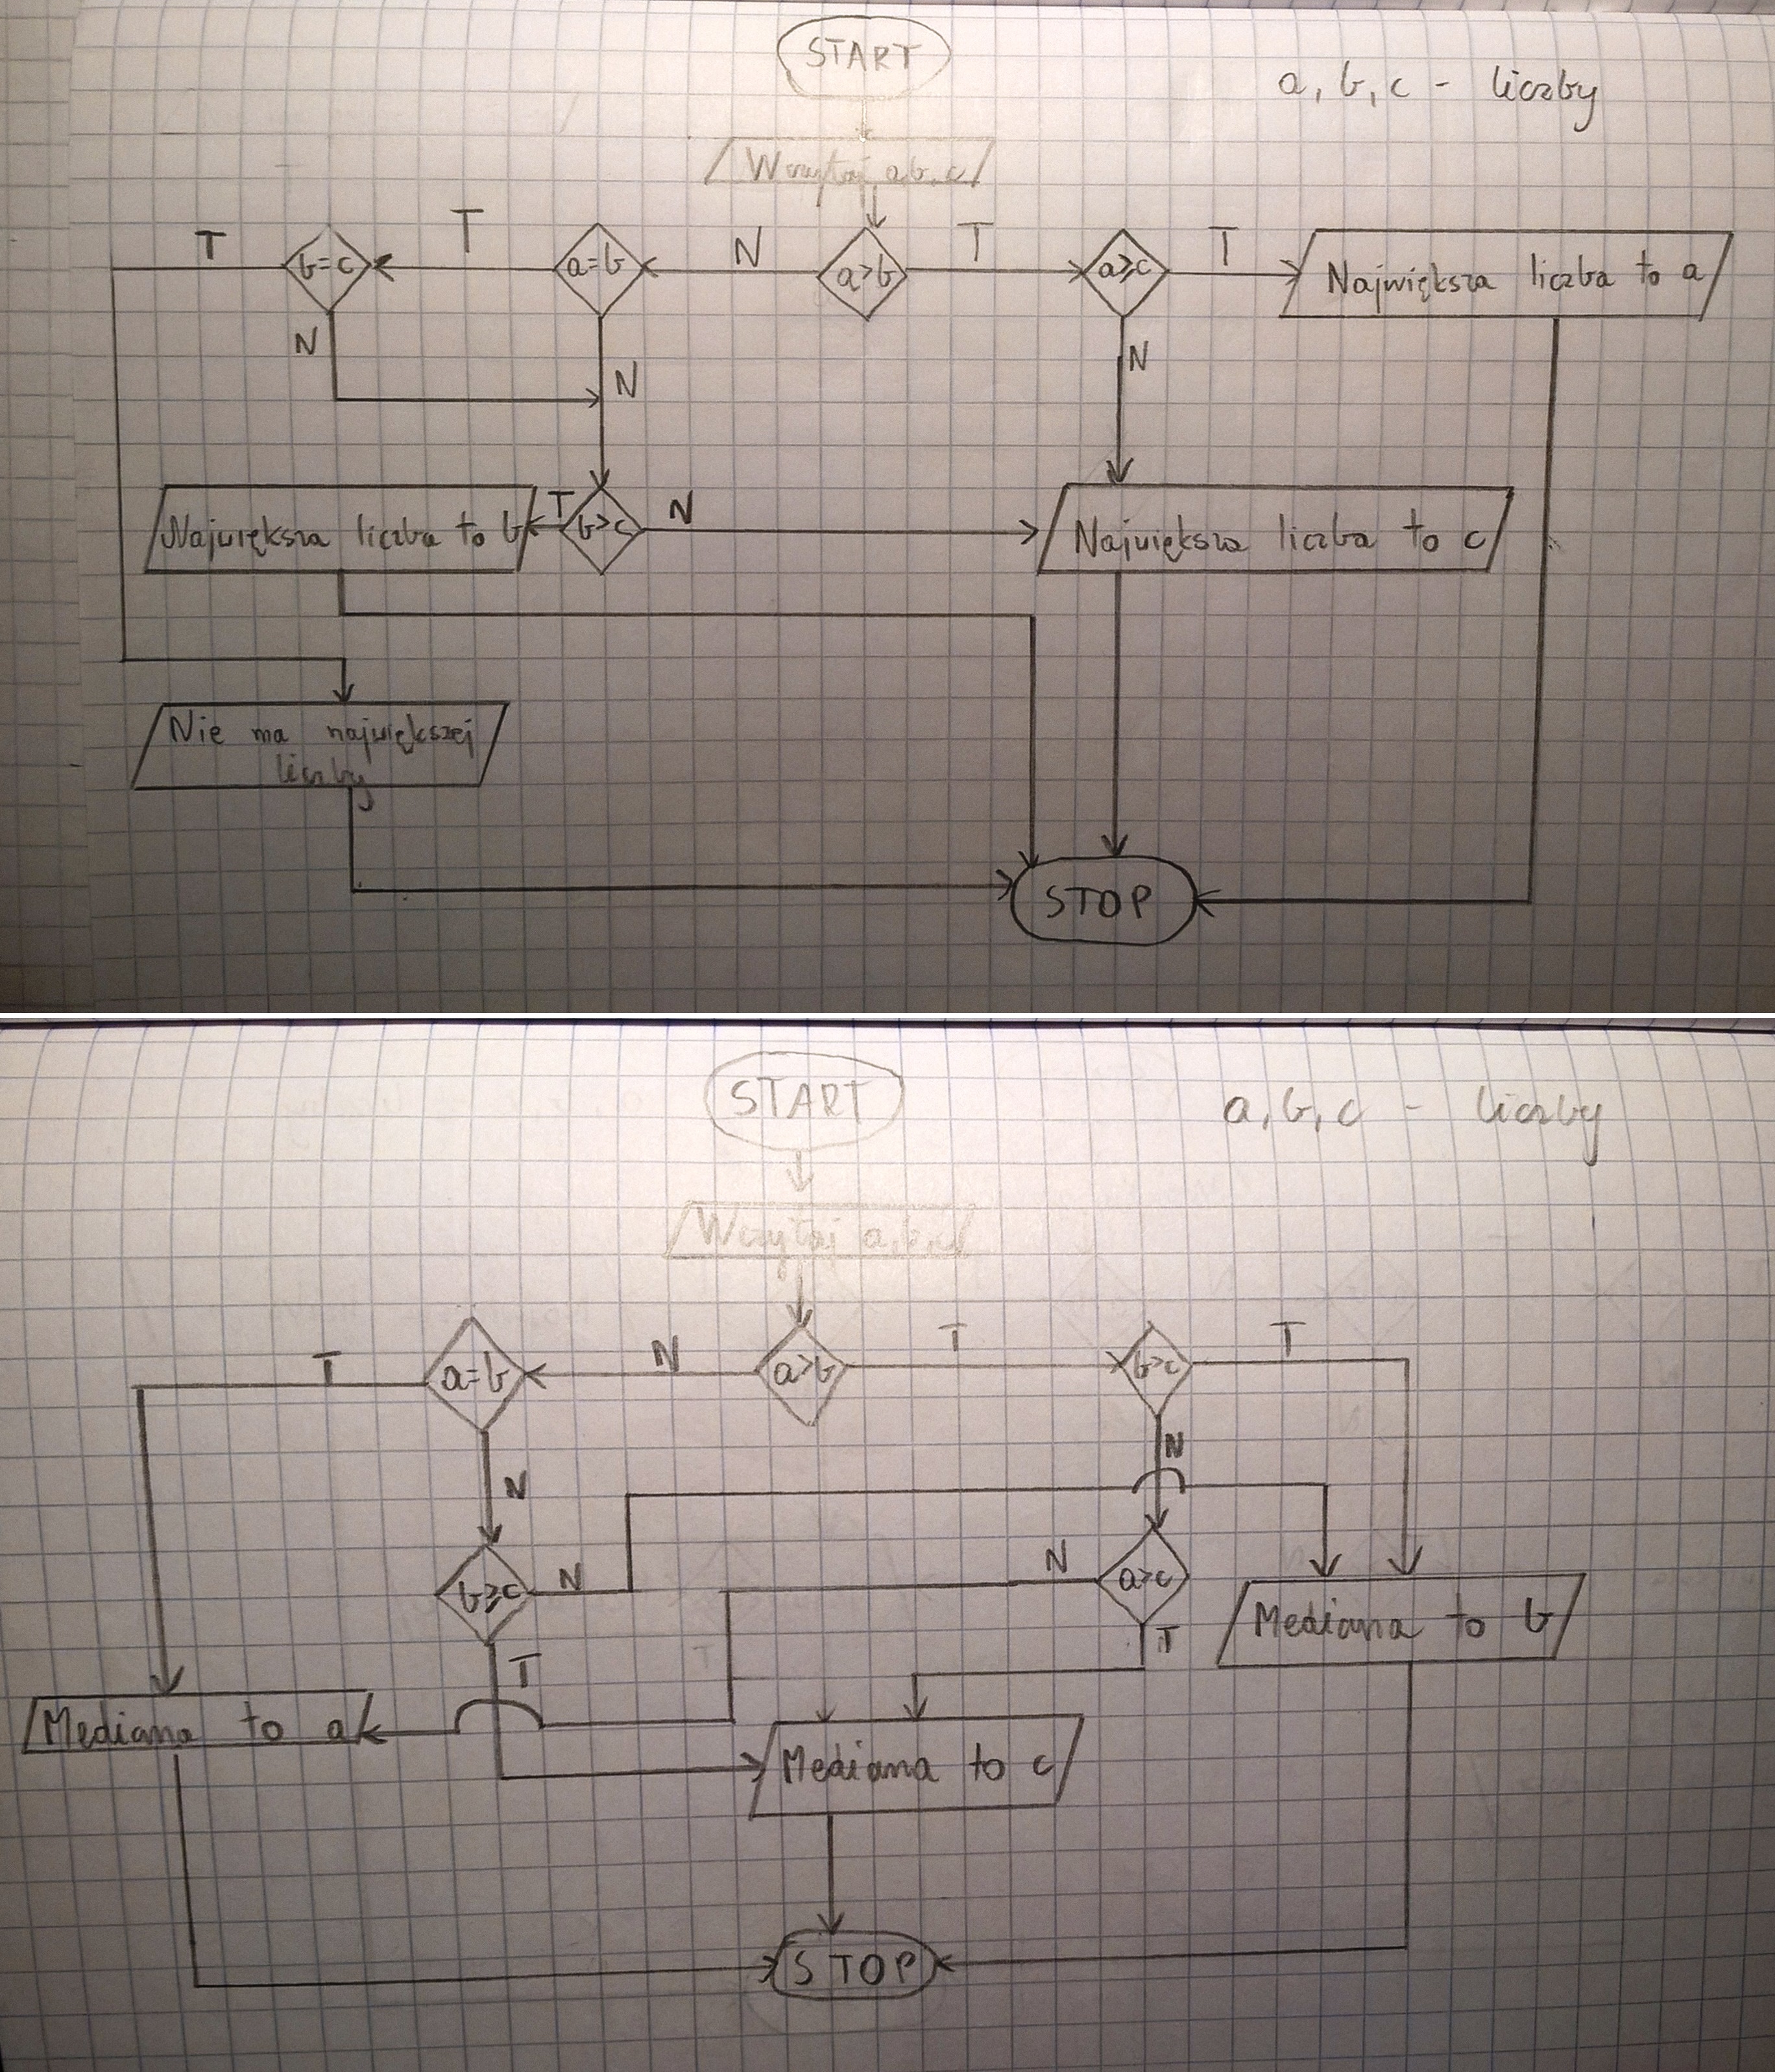 START
a, b, c - liczby
Wczytaj a,b,c
T
T
N
T
T
b=c
a=b
a>b
a≥c
Największa liczba to a
N
N
N
Największa liczba to b
T
b>c
N
Największa liczba to c
Nie ma największej
liczby
STOP
START
a, b, c - liczby
Wczytaj a,b,c
T
N
T
T
a=b
a>b
b>c
N
N
b≥c
N
N
a>c
Mediana to b
T
T
Mediana to a
Mediana to c
STOP